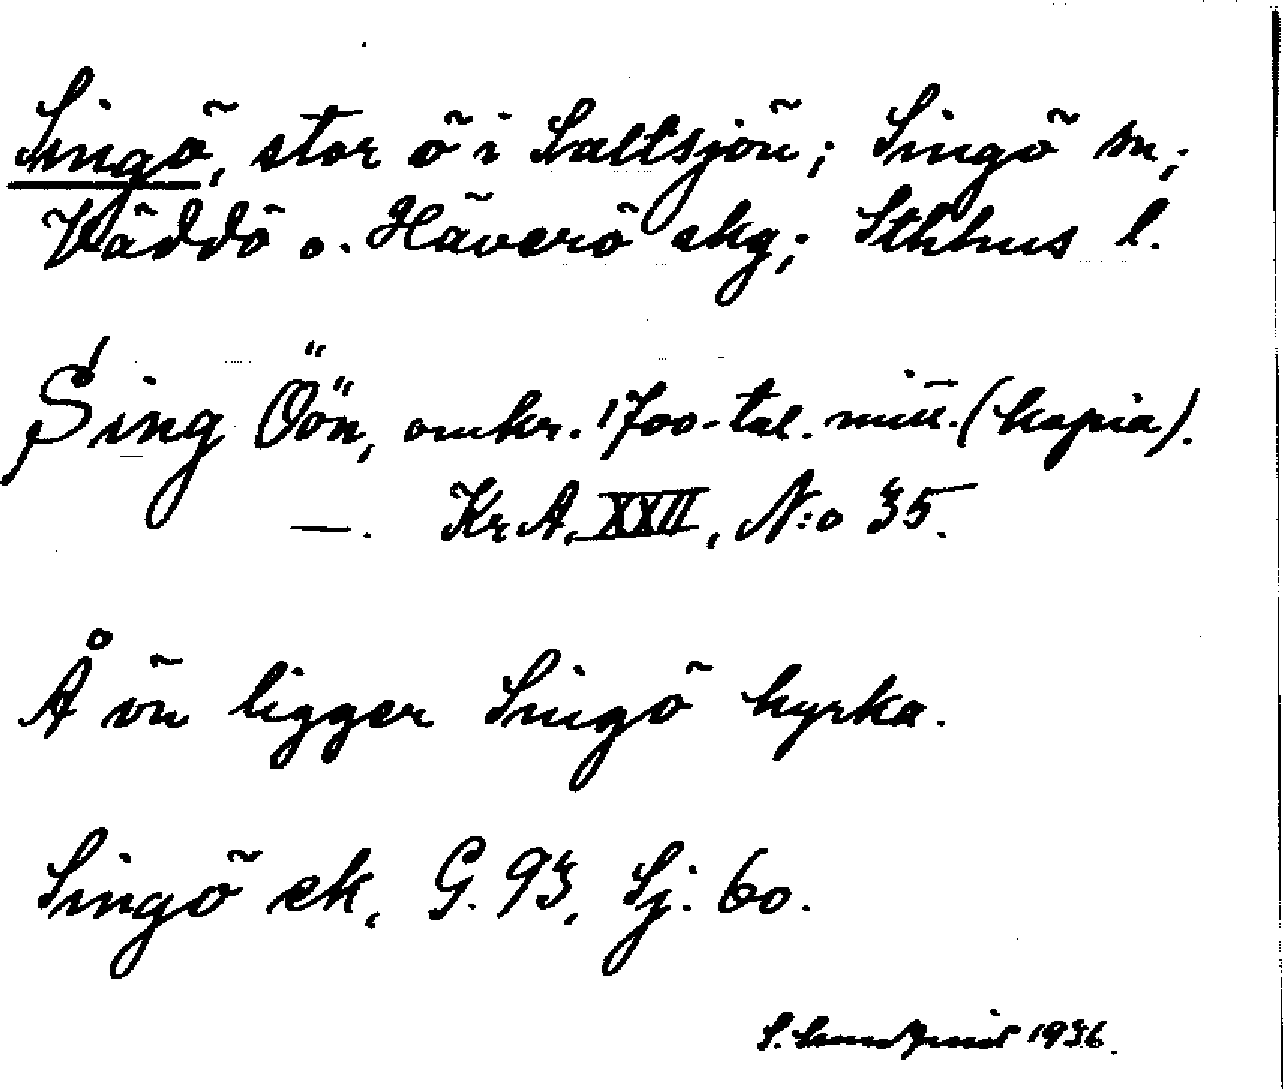 Singö, stor ö i Saltsjön; Singö sn;
Väddö o. Häverö skg; Sthlms l.
Sing Öön, omkr. 1700-tal. mitt. (kopia).
—. Kr.A. XXII, N:o 35.
Å ön ligger Singö kyrka.
Singö ek. G. 93, Sj. 60.
S. Lundqvist 1936.